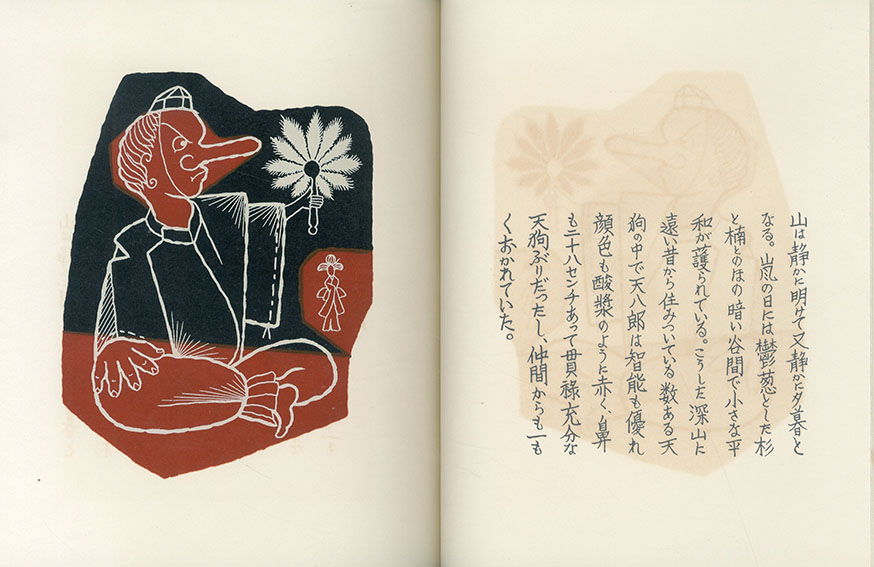 山は静かに明けて又静かに夕暮と
なる。山風の日には鬱葱とした杉
と楠とのほの暗い谷間で小さな平
和が護られている。こうした深山に
遠い昔から住みついている数ある天
狗の中で天八郎は智能も優れ
顔色も酸漿のように赤く、鼻
も二十八センチあって貫禄充分な
天狗ぶりだったし、仲間からも一も
くおかれていた。